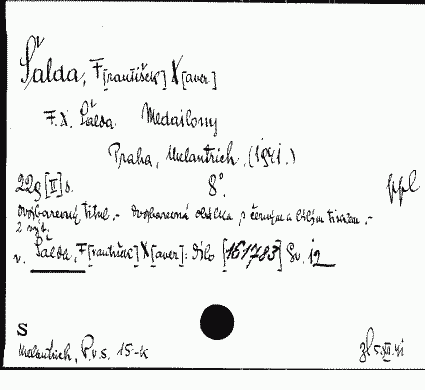 Šalda, F[rantišek] X[aver]
F.X. Šalda. Medailony
Praha, Melantrich. (1941.)
229 [II] s. 8°. ppl
dvojbarevný titul. - dvojbarevná obálka s černým a bílým tiskem. -
2 výt.
v. Šalda, F[rantišek] X[aver]: Dílo [161,783] Sv. 12
S
Melantrich, P.v.s. 15-k zl 5.XII.41